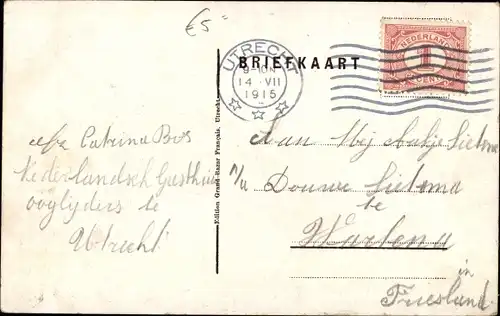 €5=
UTRECHT
9-10N
14·VII
1915
BRIEFKAART
NEDERLAND
1
CENT
Edition Grand Bazar Français, Utrecht.
afz Catrina Bos
Nederlandsch Gasthuis
ooglijders te
Utrecht
Aan Mej Aukje Sietema
p/a Douwe Sietsma
te
Wartena
in
Friesland